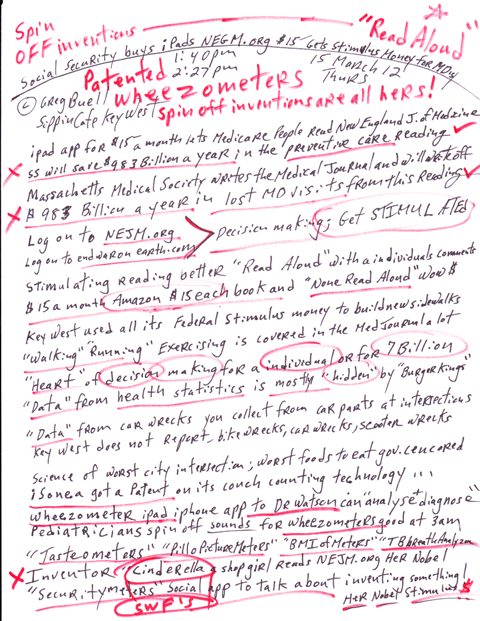 Spin
OFF inventions
"Read Aloud"
Social Security buys iPads NEGM.org $15 Gets Stimulus Money for MD's
1:40pm
15 March 12
Patented 2:27pm
Thurs
© Greg Buell
wheezometers
Sippin Cafe Key West
spin off inventions are all hers!
ipad app for $15 a month lets Medicare People Read New England J. of Medicine
SS will save $983 Billion a year in the preventive care Reading
Massachetts Medical Society writes the Medical Journal and will
$983 Billion a year in lost MD visits from this Reading
Log on to NEJM.org
Decision making; Get STIMULATED
Log on to endwaronearth.com
Stimulating Reading better "Read Aloud" with a individuals comments
$15 a month Amazon $15 each book and "None Read Aloud" Wow $
Key West used all its Federal Stimulus money to build new sidewalks
"Walking" "Running" Exercising is covered in the Med Journal a lot
"Heart" of decision making for a individual or for 7 Billion
"Data" from health statistics is mostly "hidden" by "Burger Kings"
"Data" from car wrecks you collect from car parts at intersections
Key West does not report, bike wrecks, car wrecks, scooter wrecks
Science of worst city intersection; worst foods to eat gov. cencored
isonea got a Patent on its couch counting technology ...
wheezometer ipad iphone app to Dr Watson can "analyse + diagnose"
Pediatricians spin off sounds for wheezometers good at 3am
"Tasteometers" "Pillo Picture Meters" "BMI of Meters" "TB breathAnalyzer
Inventor "Cinderella a shop girl reads NEJM.org Her Nobel
"Securitymeters" Social app to talk about inventing something!
SWF's
Her Nobel Stimulus $